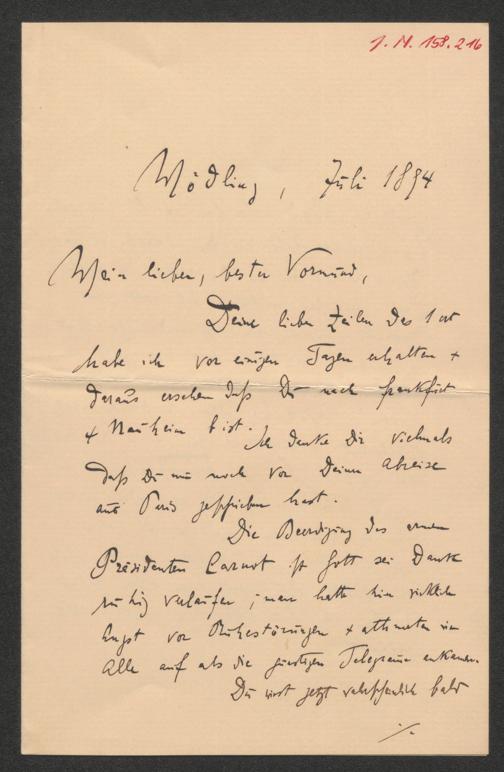 J. N. 158.216
Mödling, Juli 1894
Mein lieber, bester Vormund,
Deine lieben Zeilen des 1 ct
habe ich vor einigen Tagen erhalten +
daraus ersehen daß Du nach Frankfurt
+ Nauheim bist. Ich danke Dir vielmals
daß Du mir noch vor Deiner Abreise
aus Paris geschrieben hast.
Die Beerdigung des armen
Präsidenten Carnot ist Gott sei Dank
ruhig verlaufen; man hatte hier wirklich
Angst vor Ruhestörungen + athmeten wir
Alle auf als die günstigen Telegramme ankamen.
Du wirst jetzt wahrscheinlich bald
./.